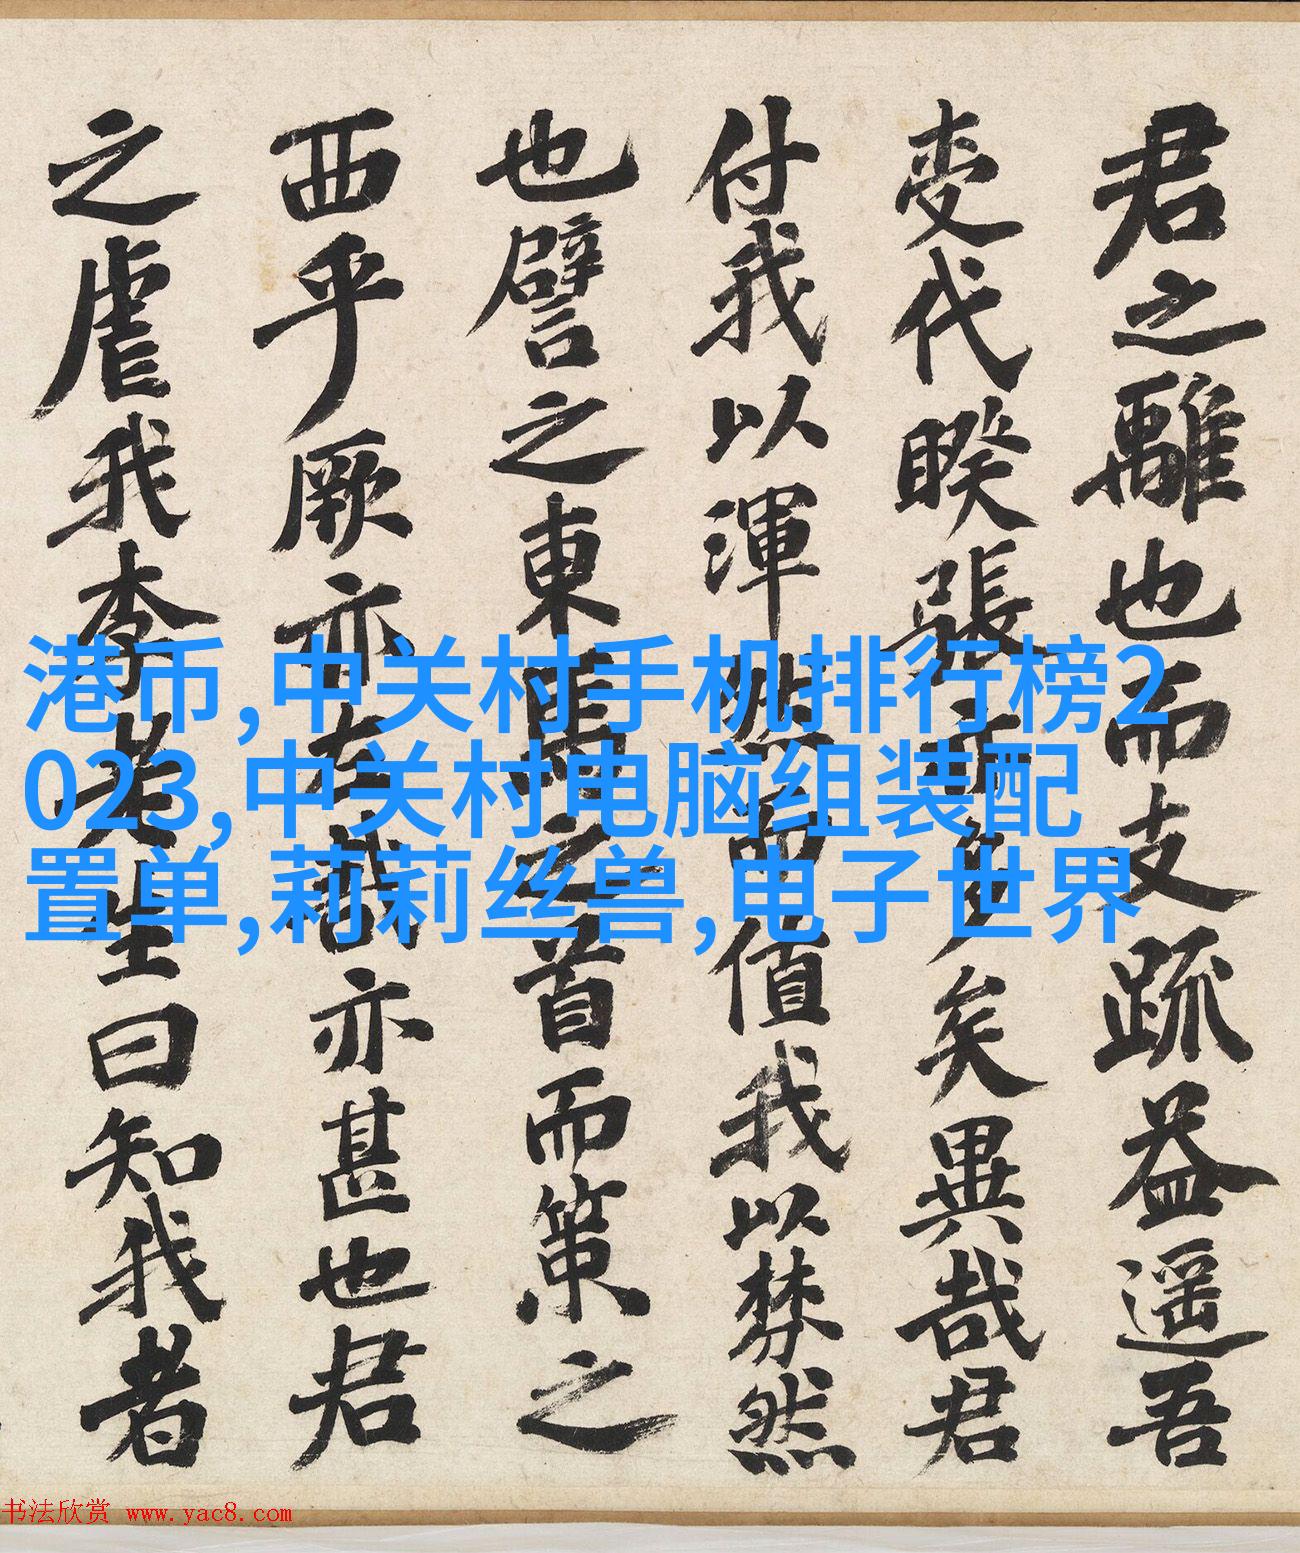 君之離也而支疏益遥吾
代暌張多矣異哉君
付我以渾而值我以棼然
也譬之東馬之首而策之
西乎厥亦左哉亦甚也君
之虐我李老生曰知我者
港币,中关村手机排行榜2
023,中关村电脑组装配
置单,莉莉丝兽,电子世界
书法欣赏 www.yac8.com